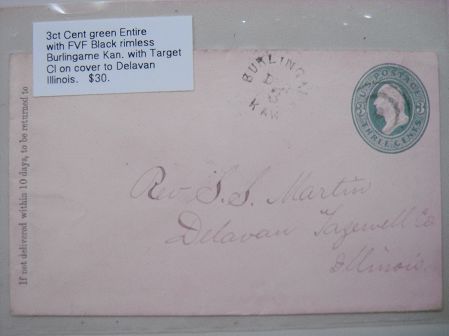 3ct Cent green Entire
with FVF Black rimless
Burlingame Kan. with Target
Cl on cover to Delavan
Illinois. $30.
BURLINGA
D
KAN
U.S. POSTAGE
3 3
THREE CENTS
If not delivered within 10 days, to be returned to
Rev S. S. Martin
Delavan Tazewell Co
Illinois